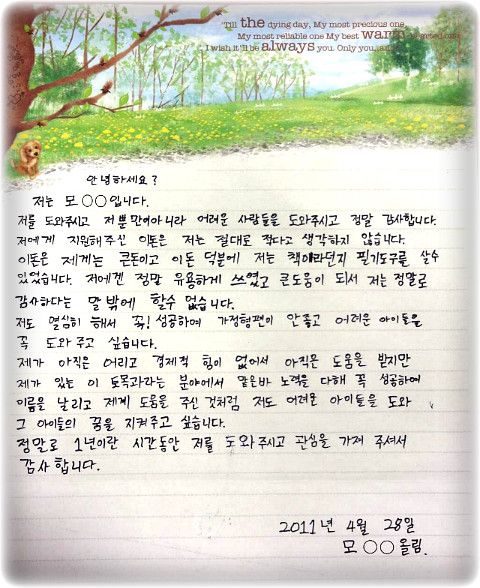 'Till the dying day, My most precious one,
My most reliable one My best warm-hearted one
I wish it'll be always you. Only you, and
안녕하세요?
저는 모○○입니다.
저를 도와주시고 저뿐만이아니라 어려운 사람들을 도와주시고 정말 감사합니다.
저에게 지원해주신 이돈은 저는 절대로 적다고 생각하지 않습니다.
이돈은 제게는 큰돈이고 이돈 덕분에 저는 책이라던지 필기도구를 살수
있었습니다. 저에겐 정말 유용하게 쓰였고 큰도움이 되서 저는정말로
감사하다는 말 밖에 할수 없습니다.
저도 열심히 해서 꼭! 성공하여 가정형편이 안좋고 어려운 아이들을
꼭 도와주고 싶습니다.
제가 아직은 어리고 경제적 힘이 없어서 아직은 도움을 받지만
제가 있는 이 도목과라는 분야에서 맡은바 노력을 다해 꼭 성공하여
이름을 날리고 제게 도움을 주신 것처럼 저도 어려운 아이들을 도와
그 아이들의 꿈을 지켜주고 싶습니다.
정말로 1년이란 시간동안 저를 도와주시고 관심을 가져 주셔서
감사합니다.
2011년 4월 28일
모○○올림.